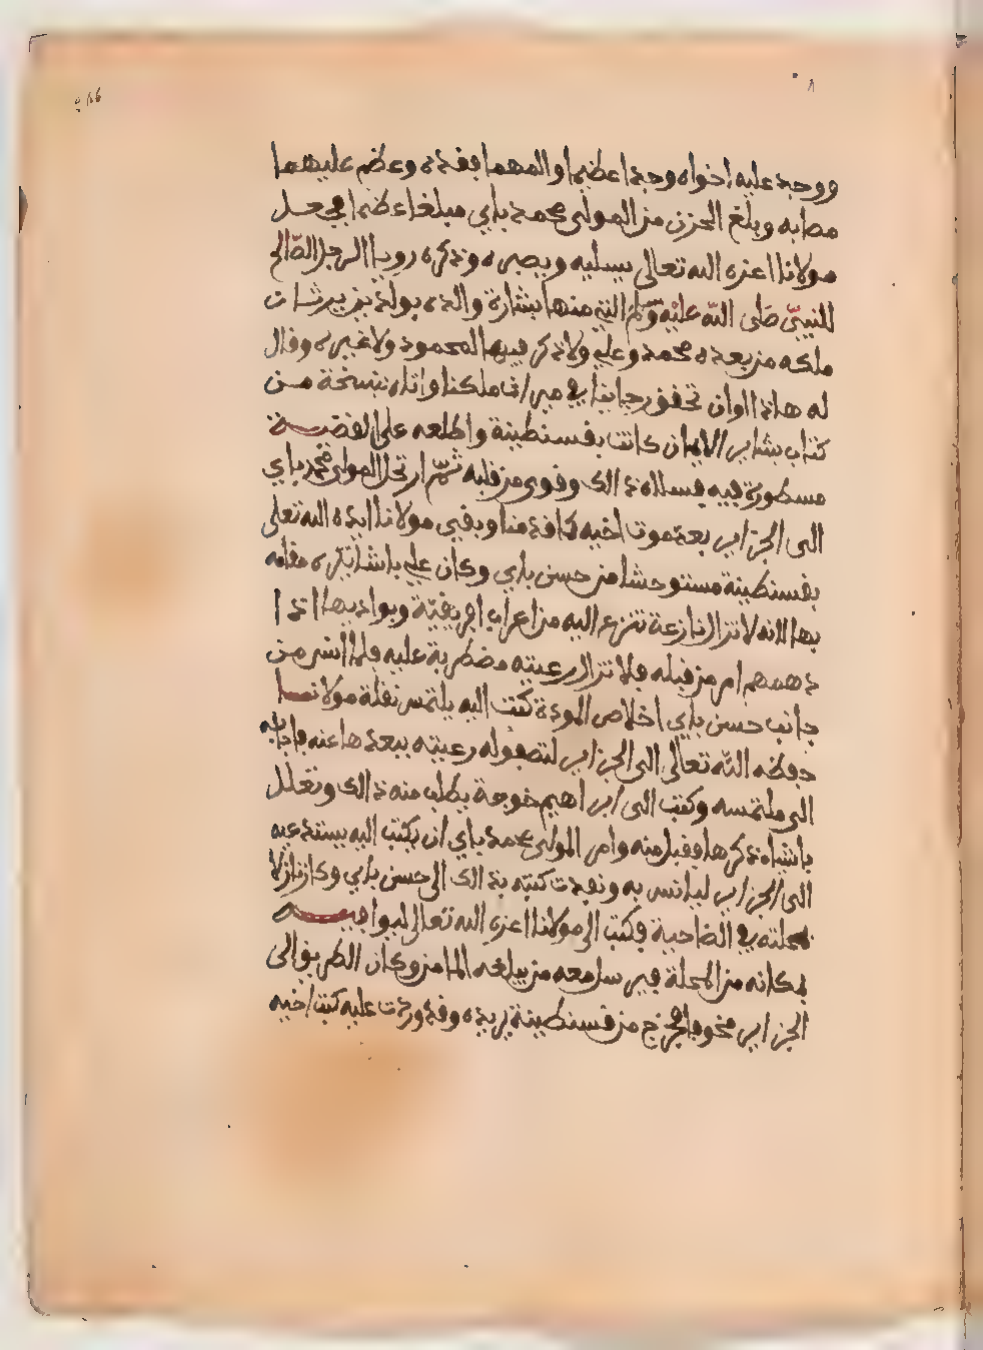 ووجد عليه اخواه وجدا عظيما والمهما فقده وعظم عليهما
مصابه وبلغ الحزن من المولى محمد باي مبلغا عظيما فجعل
مولانا اعزه الله تعالى يسليه ويصبره وذكره رويا الرجل الصالح
للنبيّ صَلى اللّه عليْه وسّلم التي منها بشارة والده بولدين يرثان
ملكه من بعده محمد وعلي ولا ذكر فيها لمحمود ولا غيره وقال
له هاذا اوان تحقق رجاينا في ميراث ملكنا واتاه بنسخة من
كتاب بشاير الايمان كانت بقسنطينة واطلعه على القضية
مسطورة فيه فسلاه ذالك وقوى من قلبه ثمّ ارتحل المولى محمد باي
الى الجزاير بعد موت اخيه كما قدمنا وبقي مولانا ايده الله تعلى
بقسنطينة مستوحشا من حسن باي وكان علي باشا يكره مقامه
بها لانه لا تزال نازعة تنزع اليه من اعراب افريقيّة وبواديها اذا
دهمهم امر من قبله فلا تزال رعيته مضطربة عليه فلما انس من
جانب حسن باي اخلاص المودة كتب اليه يلتمس نقلة مولانا
حفظه اللّه تعالى الى الجزاير لتصفو له رعيته ببعدها عنه فاجابه
الى ملتمسه وكتب الى ابراهيم خوجة يطلب منه ذالك وتعلل
باشياء ذكرها فقبل منه وامر المولى محمد باي ان يكتب اليه يستدعيه
الى الجزاير ليانس به ونفذت كتبه بذالك الى حسن باي وكان نازلا
بمحلته في الضاحية فكتب الى مولانا اعزه الله تعالى ليوافيه
بمكانه من المحلة فيرسل معه من يبلغه المامن وكان الطريق الى
الجزاير مخوفا فخرج من قسنطينة يريده وقد وردت عليه كتب اخيه